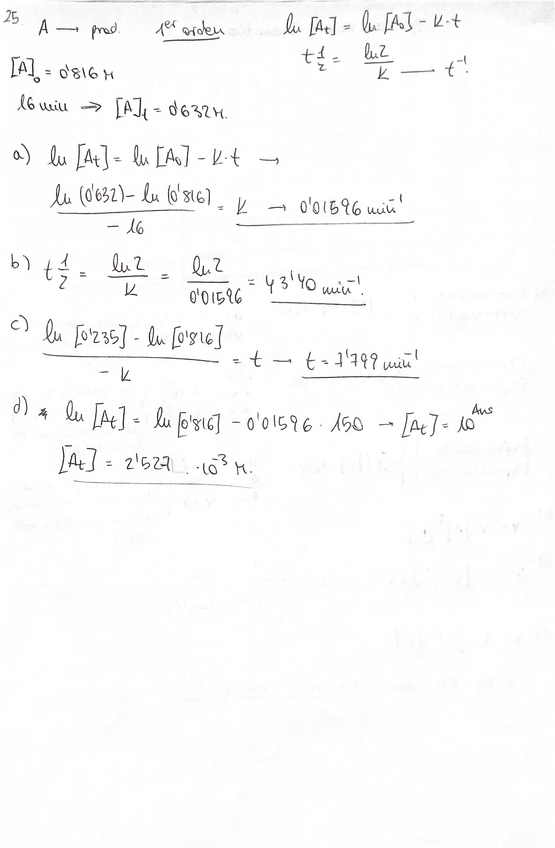 25. A → prod. 1er orden ln [At] = ln [A0] - K·t
t 1/2 = ln2 / K — t⁻¹.
[A]₀ = 0'816 M
16 min ⇒ [A]t = 0'632 M.
a) ln [At] = ln [A0] - K·t →
ln (0'632) - ln (0'816) / -16 = K → 0'01596 min⁻¹
b) t 1/2 = ln2 / K = ln2 / 0'01596 = 43'40 min⁻¹.
c) ln [0'235] - ln [0'816] / -K = t → t = 7'799 min⁻¹
d) ln [At] = ln [0'816] - 0'01596 · 150 → [At] = 10^Ans
[At] = 2'527 ·10⁻³ M.